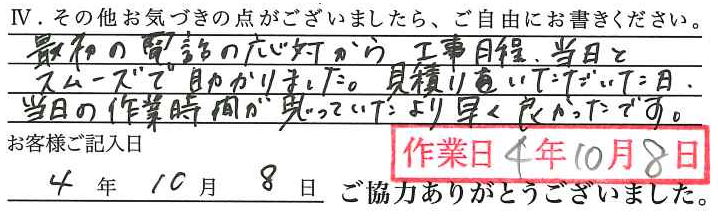 Ⅳ．その他お気づきの点がございましたら、ご自由にお書きください。
最初の電話の応対から 工事日程、当日と
スムーズで助かりました。見積り直いただいた日、
当日の作業時間が思っていたより早く良かったです。
お客様ご記入日
作業日 4年10月8日
4年10月8日 ご協力ありがとうございました。